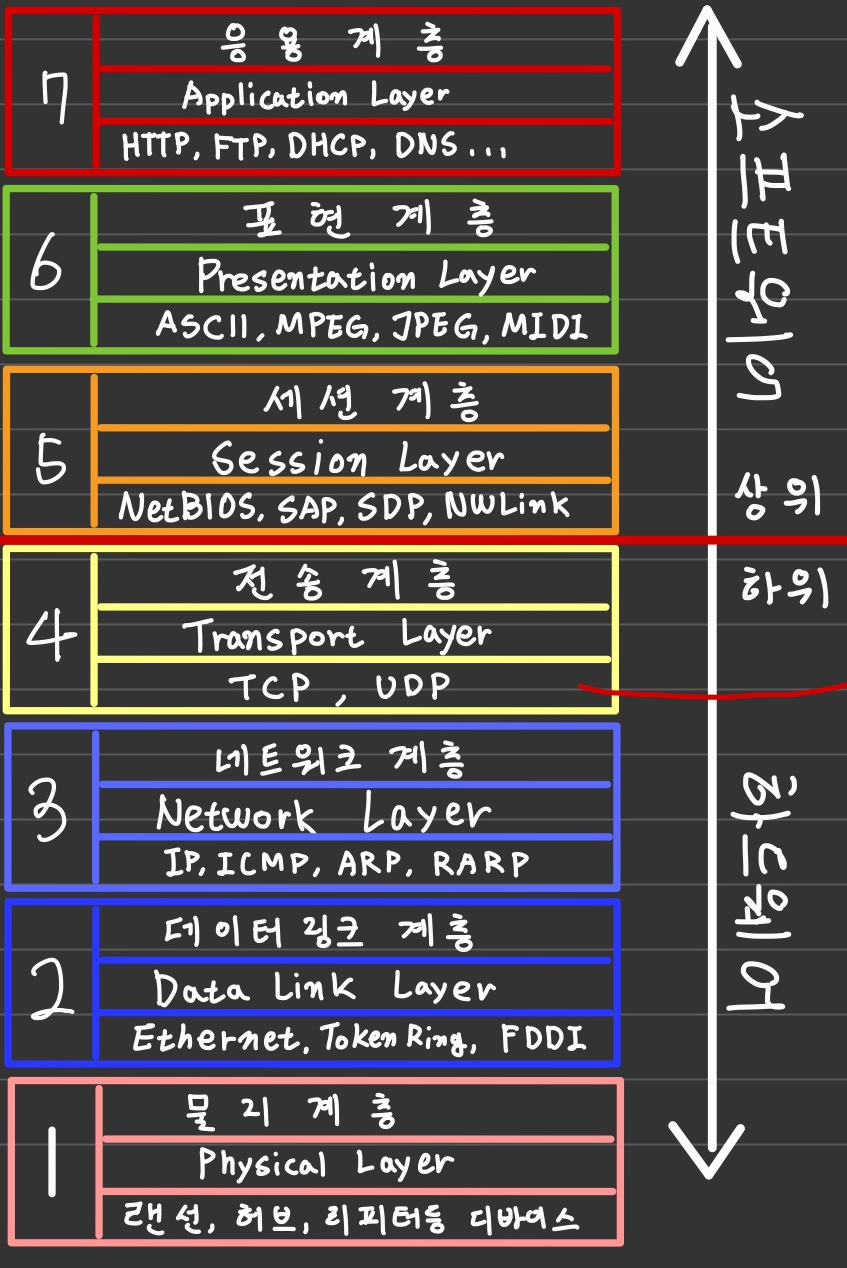 7
응용 계층
Application Layer
HTTP, FTP, DHCP, DNS ...
6
표현 계층
Presentation Layer
ASCII, MPEG, JPEG, MIDI
5
세션 계층
Session Layer
NetBIOS, SAP, SDP, NWLink
4
전송 계층
Transport Layer
TCP, UDP
3
네트워크 계층
Network Layer
IP, ICMP, ARP, RARP
2
데이터링크 계층
Data Link Layer
Ethernet, Token Ring, FDDI
1
물리 계층
Physical Layer
랜선, 허브, 리피터등 디바이스
소프트웨어
상위
하위
하드웨어